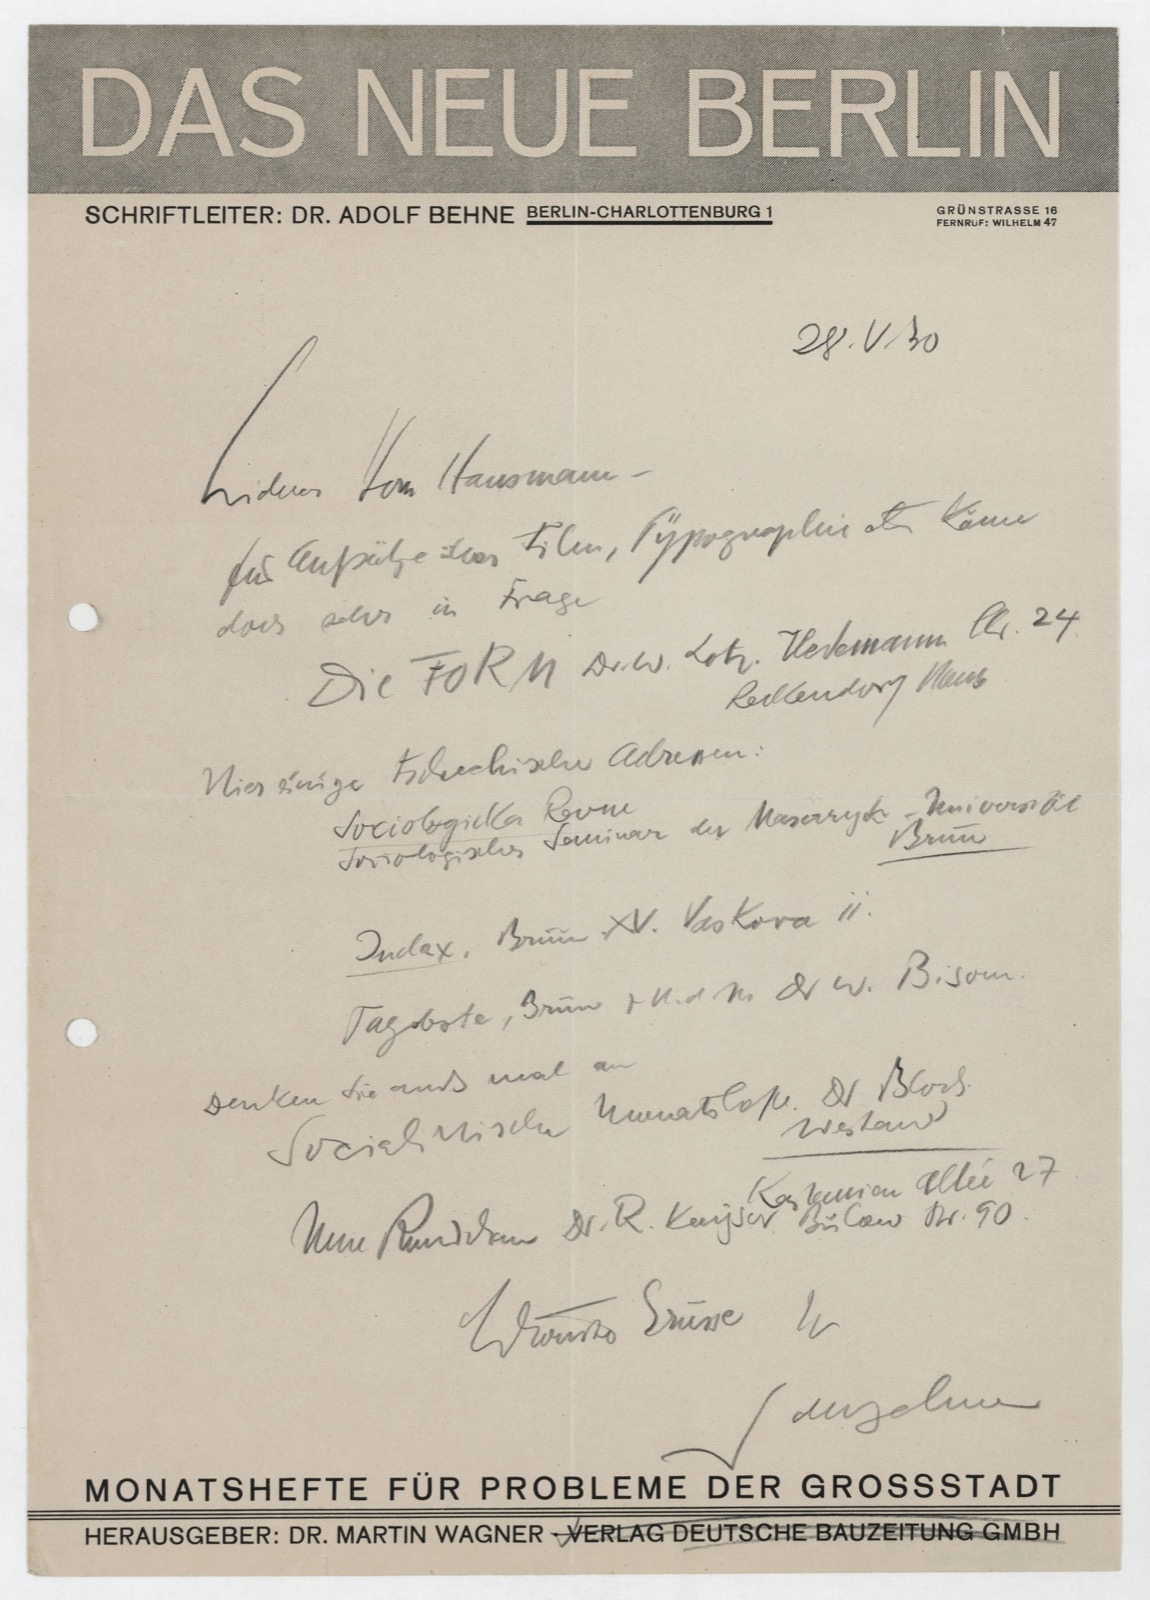 DAS NEUE BERLIN
SCHRIFTLEITER: DR. ADOLF BEHNE BERLIN-CHARLOTTENBURG 1
GRÜNSTRASSE 16
FERNRUF: WILHELM 47
28.V.30
Lieber Herr Hausmann –
für Aufsätze über Film, Typographie etc käme
doch sehr in Frage
Die FORM Dr. W. Lotz. Str. 24
Reckendorf Haus
Hier einige tschechische Adressen:
Sociologicka Revue
Soziologisches Seminar der Masaryk-Universität
Brünn
Index, Brünn XV. Vaskova ii.
Tagesbote, Brünn Dr W.
Denken Sie auch mal an
Socialistische Monatshefte. Dr Bloch
Westend
Kastanien Allée 27
Neue Rundschau Dr. R. Kayser Bülow Str. 90.
Grüsse Ihr
MONATSHEFTE FÜR PROBLEME DER GROSSSTADT
HERAUSGEBER: DR. MARTIN WAGNER - VERLAG DEUTSCHE BAUZEITUNG GMBH